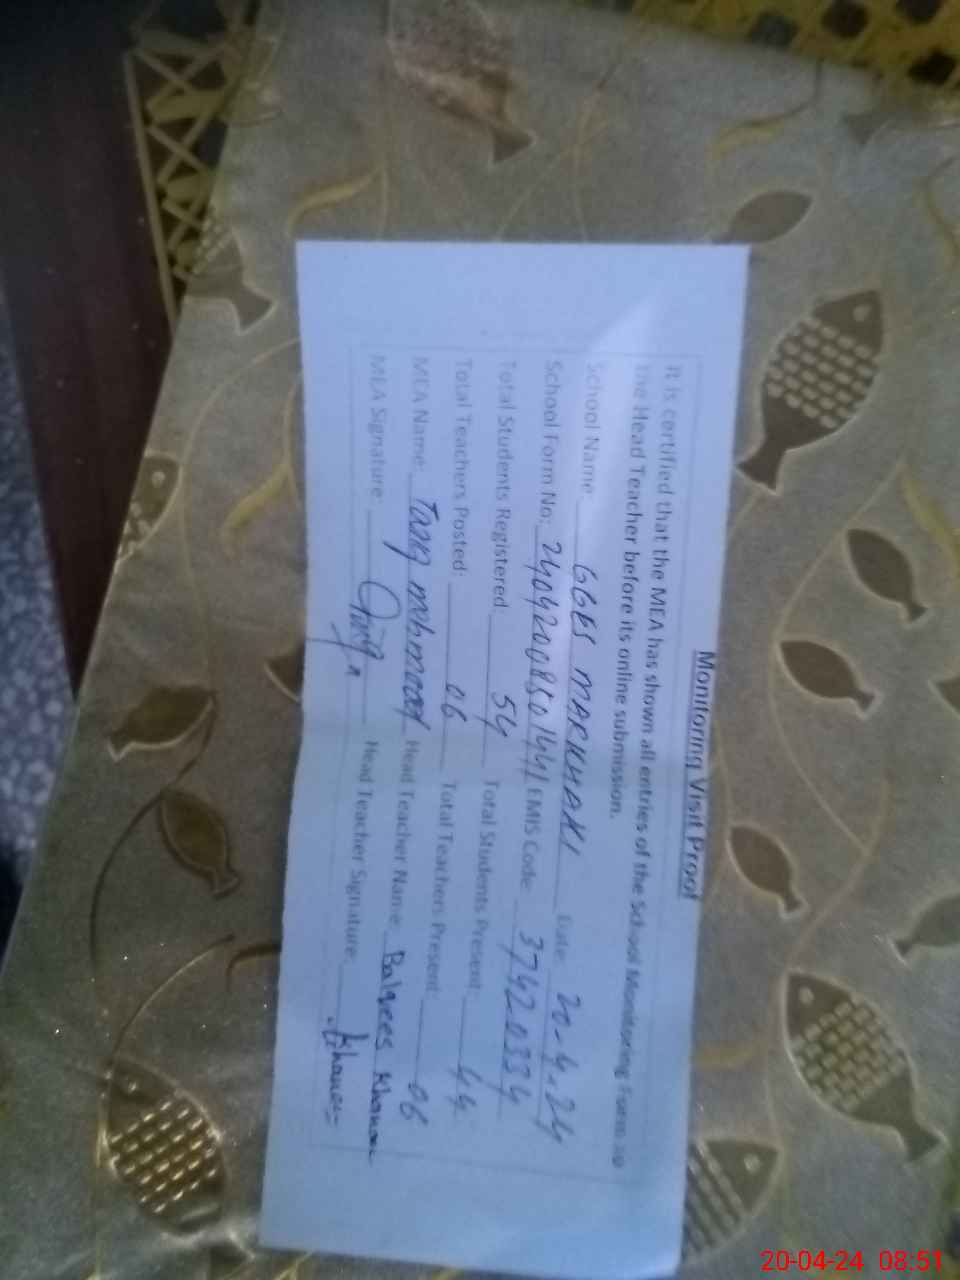 Monitoring Visit Proof
It is certified that the MEA has shown all entries of the School Monitoring Form to
the Head Teacher before its online submission.
School Name: GGES MARKHAKI Date: 20-4-24
School Form No: 24042008501441 EMIS Code: 37420334
Total Students Registered 54 Total Students Present: 44
Total Teachers Posted: 06 Total Teachers Present: 06
MEA Name: Tariq mehmood Head Teacher Name: Balqees Khanam
MEA Signature: Head Teacher Signature:
20-04-24 08:51